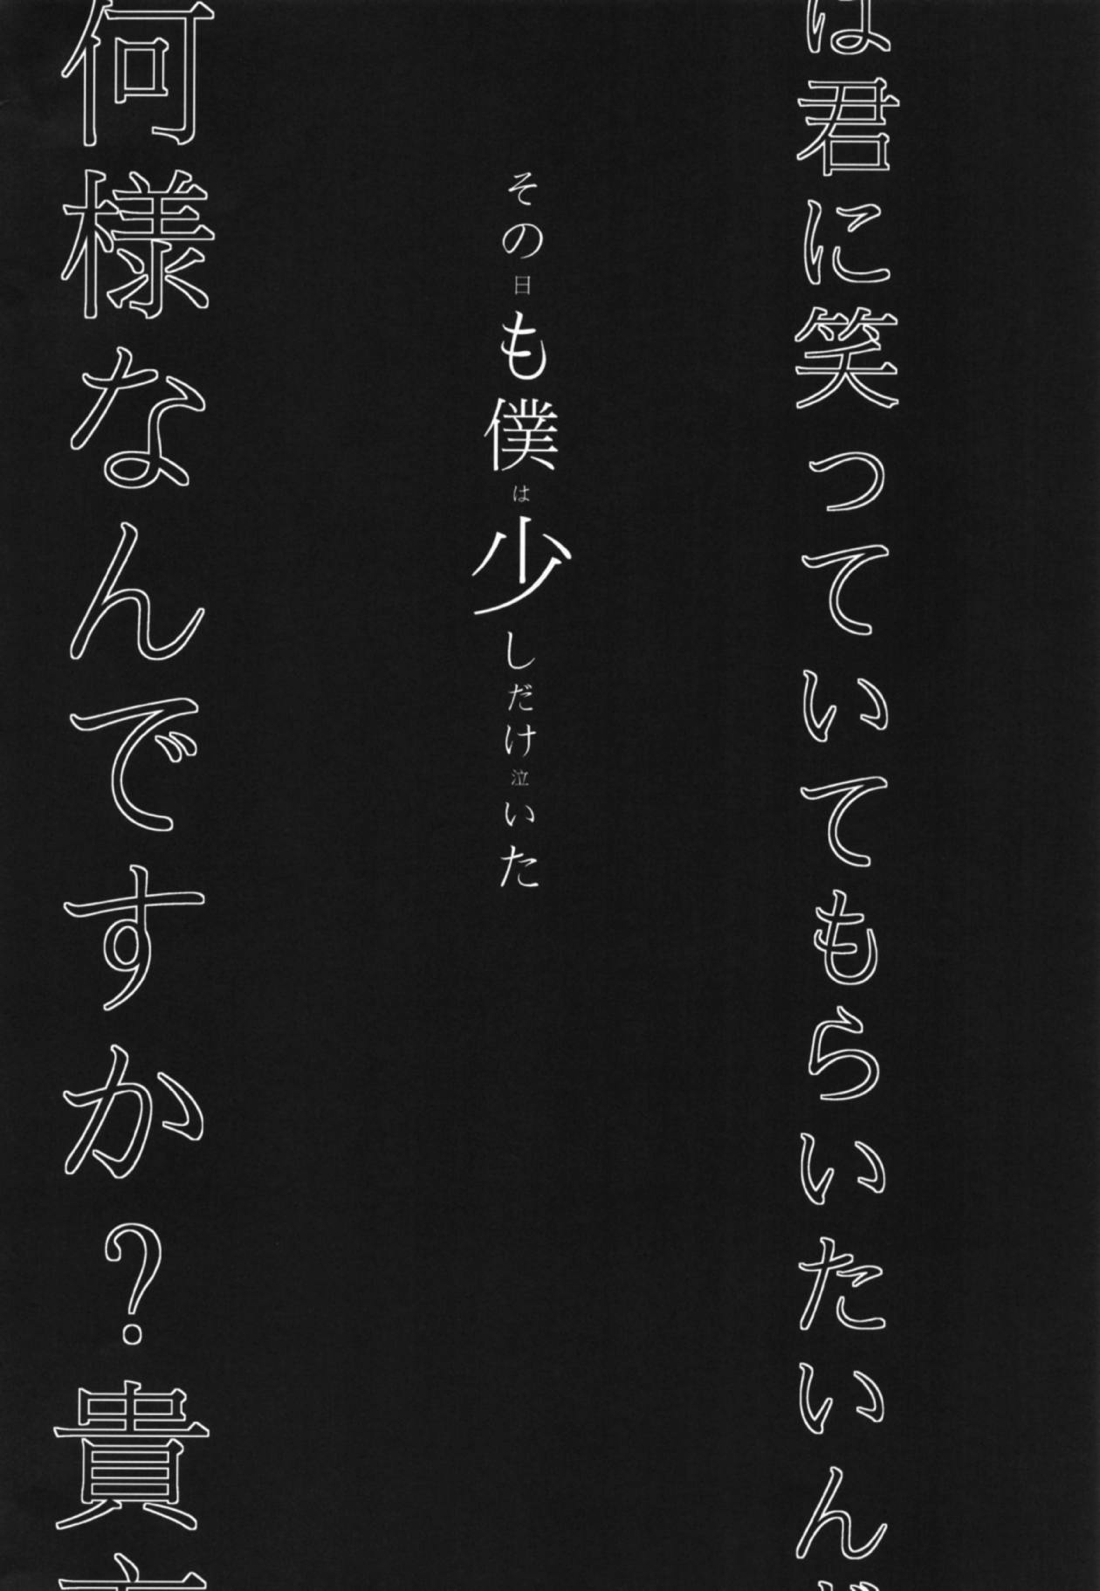 は君に笑っていてもらいたいんだ
その日も僕は少しだけ泣いた
何様なんですか?貴方